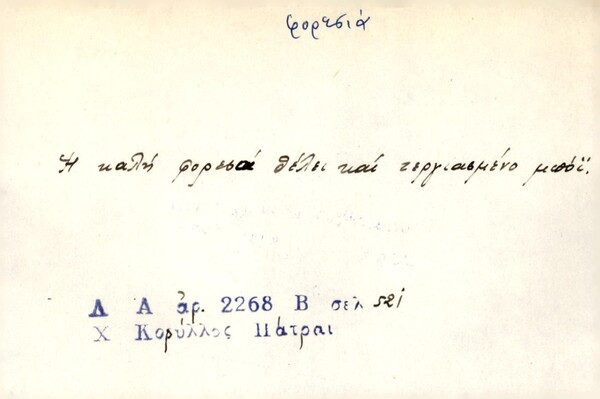 φορεσιά
Ἡ καλή φορεσά θέλει καί τεργιασμένο μπόϊ.
Λ Α ἀρ. 2268 Β σελ 521
Χ Κορύλλος Πάτραι